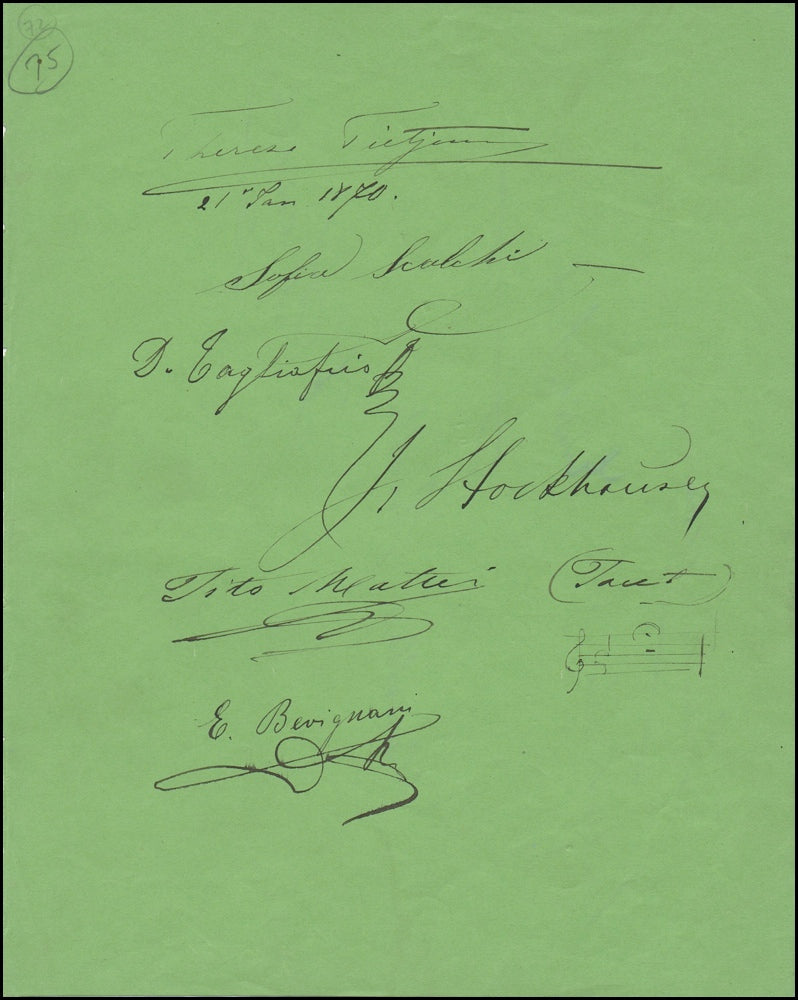 72
75
Therese Tietjens
21st Jan 1870.
Sofia Scalchi
D. Tagliafico
J. Stockhausen
Tito Mattei (Tacet)
E. Bevignani